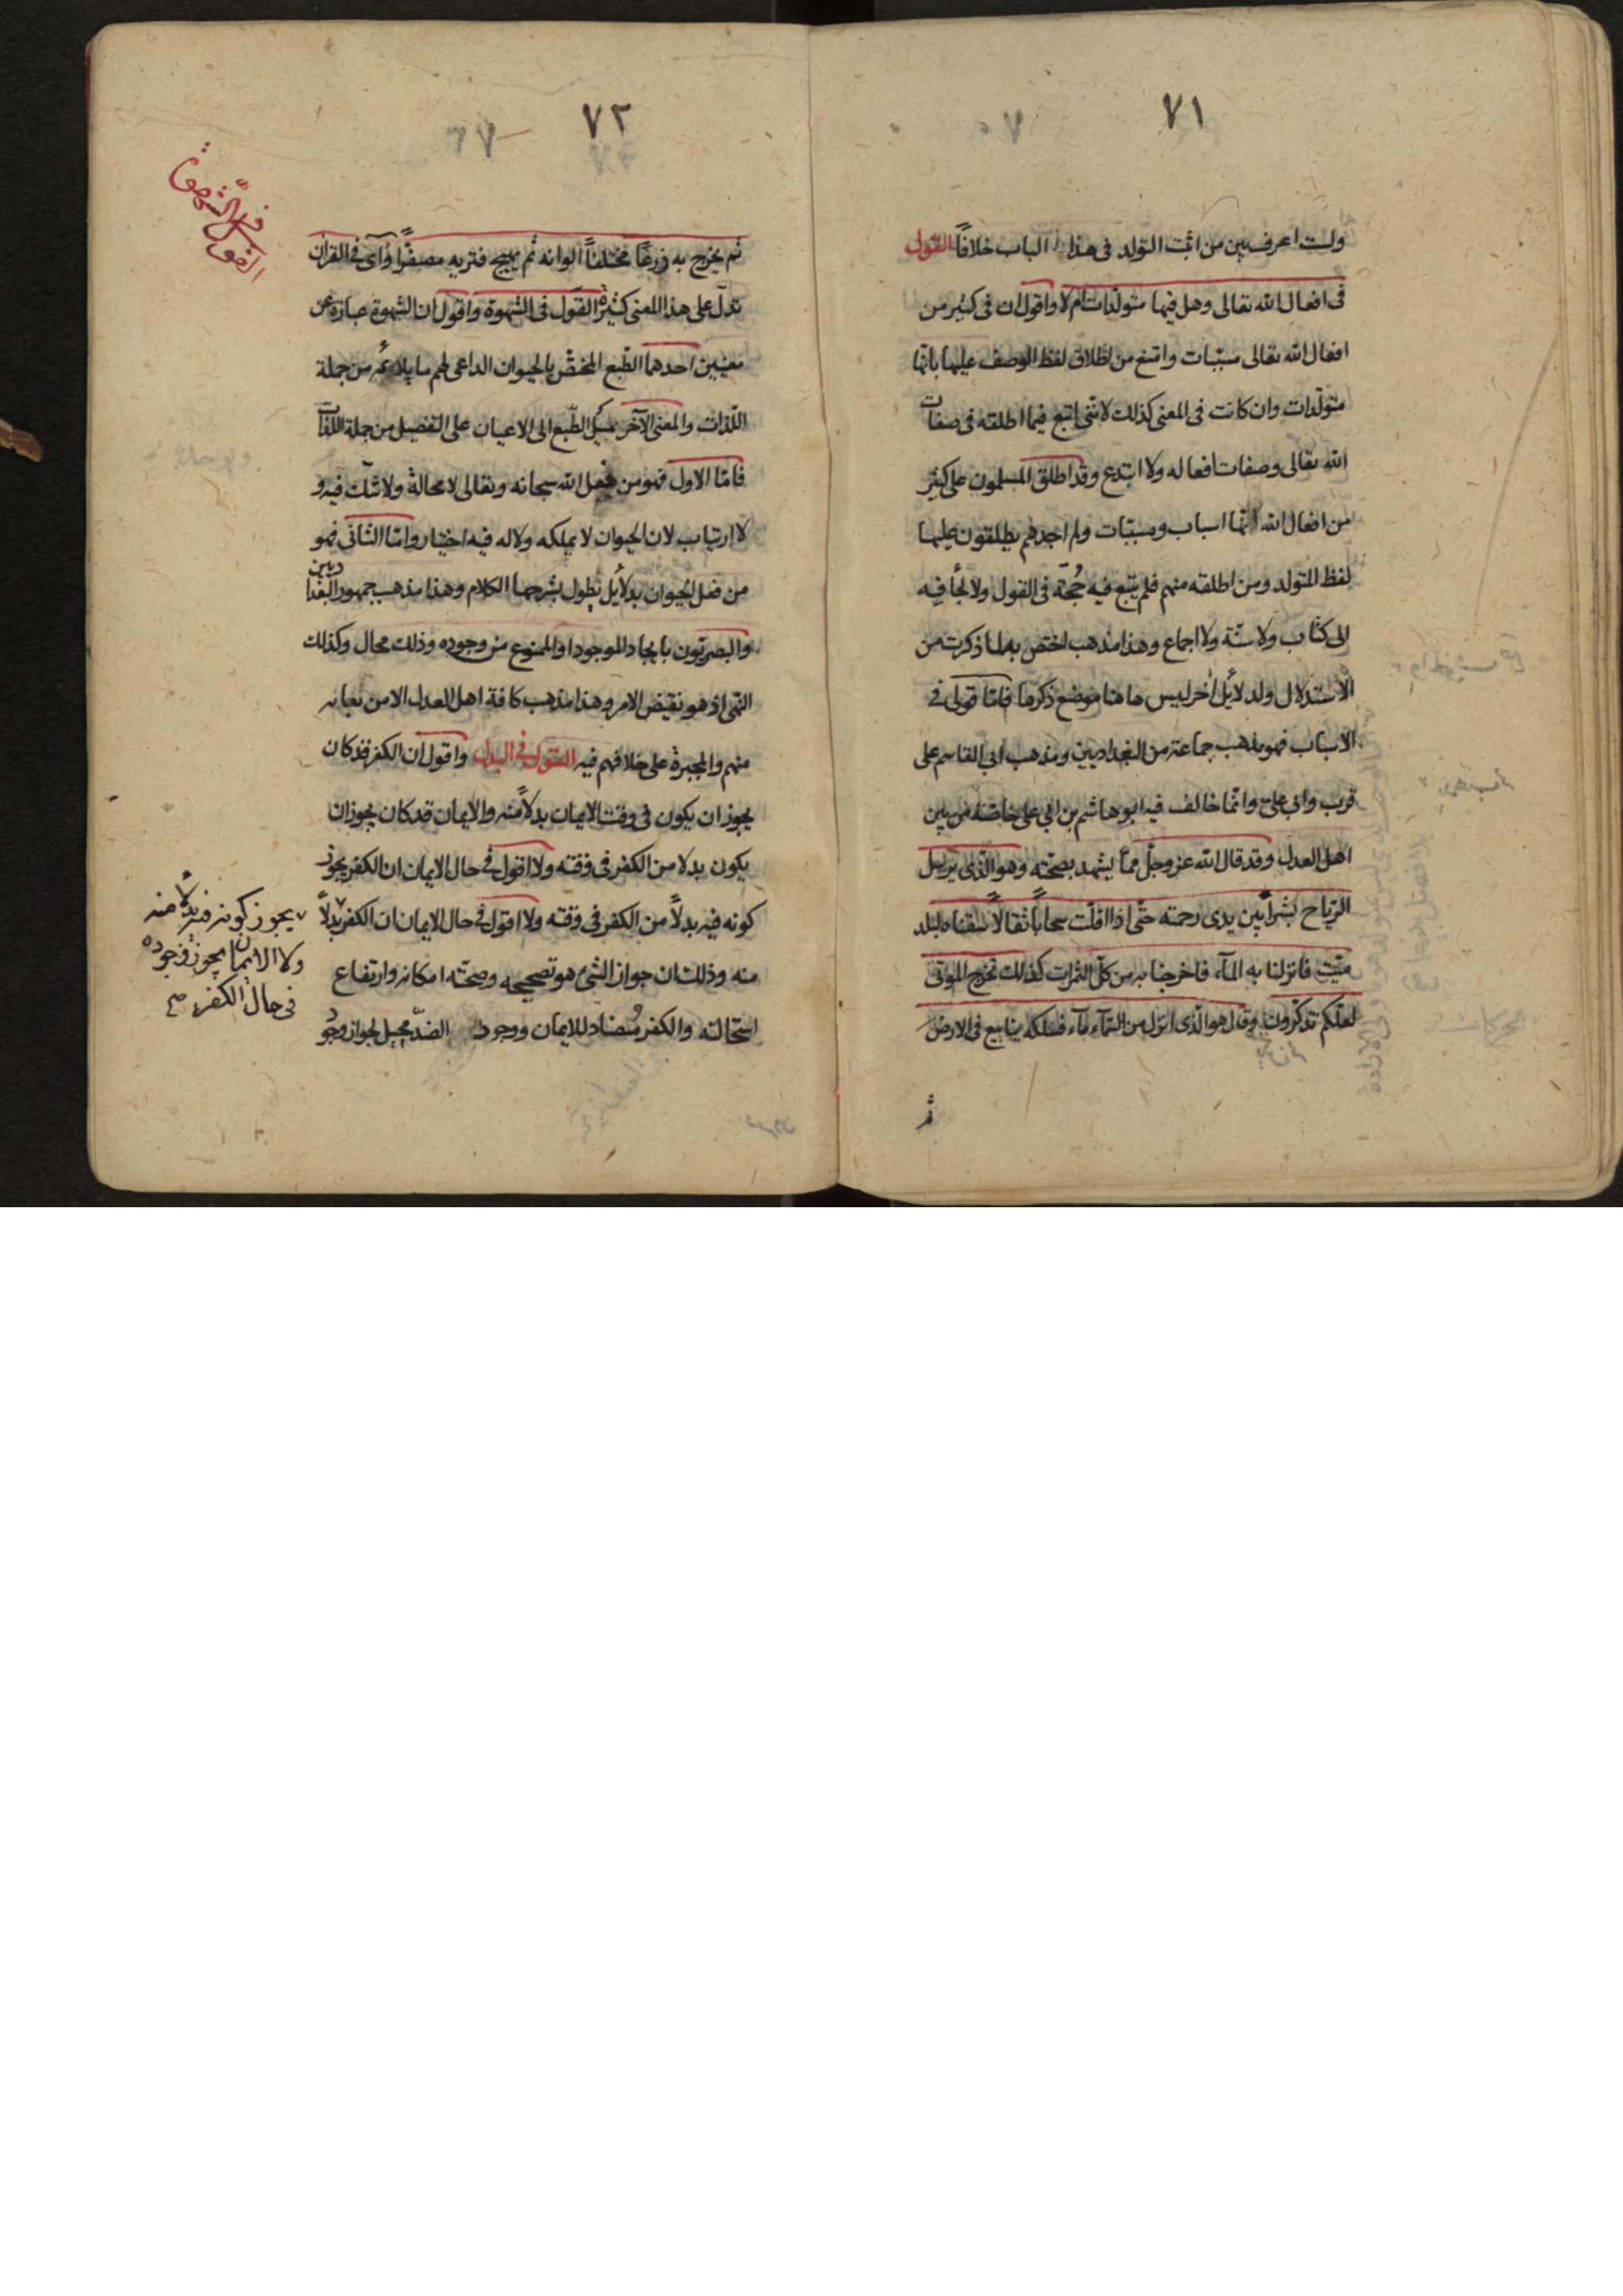 ٧١
ولست اعرف بين من اثبت التولد فى هذا الباب خلافاً القول
فى افعال الله تعالى وهل فيها متولّدات ام لا واقول ان فى كثير من
افعال الله تعالى مسبّبات وامتنع من اطلاق لفظ الوصف عليها بانّها
متولّدات وان كانت فى المعنى كذلك لانّنى اتبع فيما اطلقه فى صفات
الله تعالى وصفات افعاله ولا ابتدع وقد اطلق المسلمون على كثير
من افعال الله انّها اسباب ومسبّبات ولم اجدهم يطلقون عليها
لفظ المتولد ومن اطلقه منهم فلم يتبع فيه حُجّة فى القول ولا لجأ فيه
الى كتاب ولا سنّة ولا اجماع وهذا مذهب اختص به لما ذكرت من
الاستدلال ولدلائل اخر ليس هاهنا موضع ذكرها فامّا قولى فى
الاسباب فهو مذهب جماعة من البغداديين ومذهب ابى القاسم على
قرب وابى على وانّما خالف فيه ابو هاشم بن ابى على خاصّة من بين
اهل العدل وقد قال الله عز وجلّ ممّا يشهد بصحّته وهو الّذى يرسل
الرّياح بشراً بين يدى رحمته حتّى اذا اقلّت سحاباً ثقالاً سقناه لبلد
ميّت فانزلنا به المآء فاخرجنا به من كلّ الثمرات كذلك نخرج الموتى
لعلّكم تذكّرون وقال هو الّذى انزل من السّمآء مآء فسلكه ينابيع فى الارض
ثم
٧٢
القول فى الشهوة
ثم يخرج به زرعاً مختلفاً الوانه ثم يهيج فتريه مصفرّاً وآى فى القرآن
تدلّ على هذا المعنى كثيرة القول فى الشهوة واقول ان الشهوة عبارة عن
معنيين احدهما الطّبع المختصّ بالحيوان الداعى لهم ما يلائمه من جملة
اللّذات والمعنى الآخر ميل الطّبع الى الاعيان على التفصيل من جملة اللذات
فامّا الاول فهو من فعل الله سبحانه وتعالى لا محالة ولا شكّ فيه و
لا ارتياب لان الحيوان لا يملكه ولا له فيه اختيار وامّا الثانى فهو
من فعل الحيوان بدلائل يطول بشرحها الكلام وهذا مذهب جمهور البغداديين
والبصريّون بايجاد الموجود او الممنوع من وجوده وذلك محال وكذلك
النهى اذ هو نقيض الامر وهذا مذهب كافة اهل العدل الا من نعبا به
منهم والمجبرة على خلافهم فيه القول فى البدل واقول ان الكفر قد كان
يجوز ان يكون فى وقت الايمان بدلاً منه والايمان قد كان يجوز ان
يكون بدلا من الكفر فى وقته ولا اقول فى حال الايمان ان الكفر يجوز
كونه فيه بدلاً من الكفر فى وقته ولا اقول فى حال الايمان ان الكفر بدلاً
منه وذلك ان جواز الشئ هو تصحيحه وصحّته امكانه وارتفاع
استحالته والكفر مُضاد للايمان ووجود الضدّ محيل لجواز وجود
يجوز كونه فيه بدلاً منه
ولا الايمان يجوز وجوده
فى حال الكفر صح